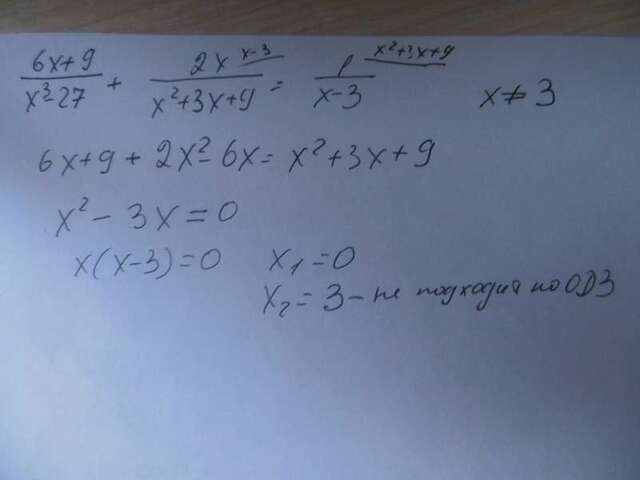 (6x+9)/(x³-27) + 2x/(x²+3x+9) ^(x-3) = 1/(x-3) ^(x²+3x+9)   x≠3
6x+9+2x²-6x=x²+3x+9
x²-3x=0
x(x-3)=0   x₁=0
x₂=3-не подходит по ОДЗ